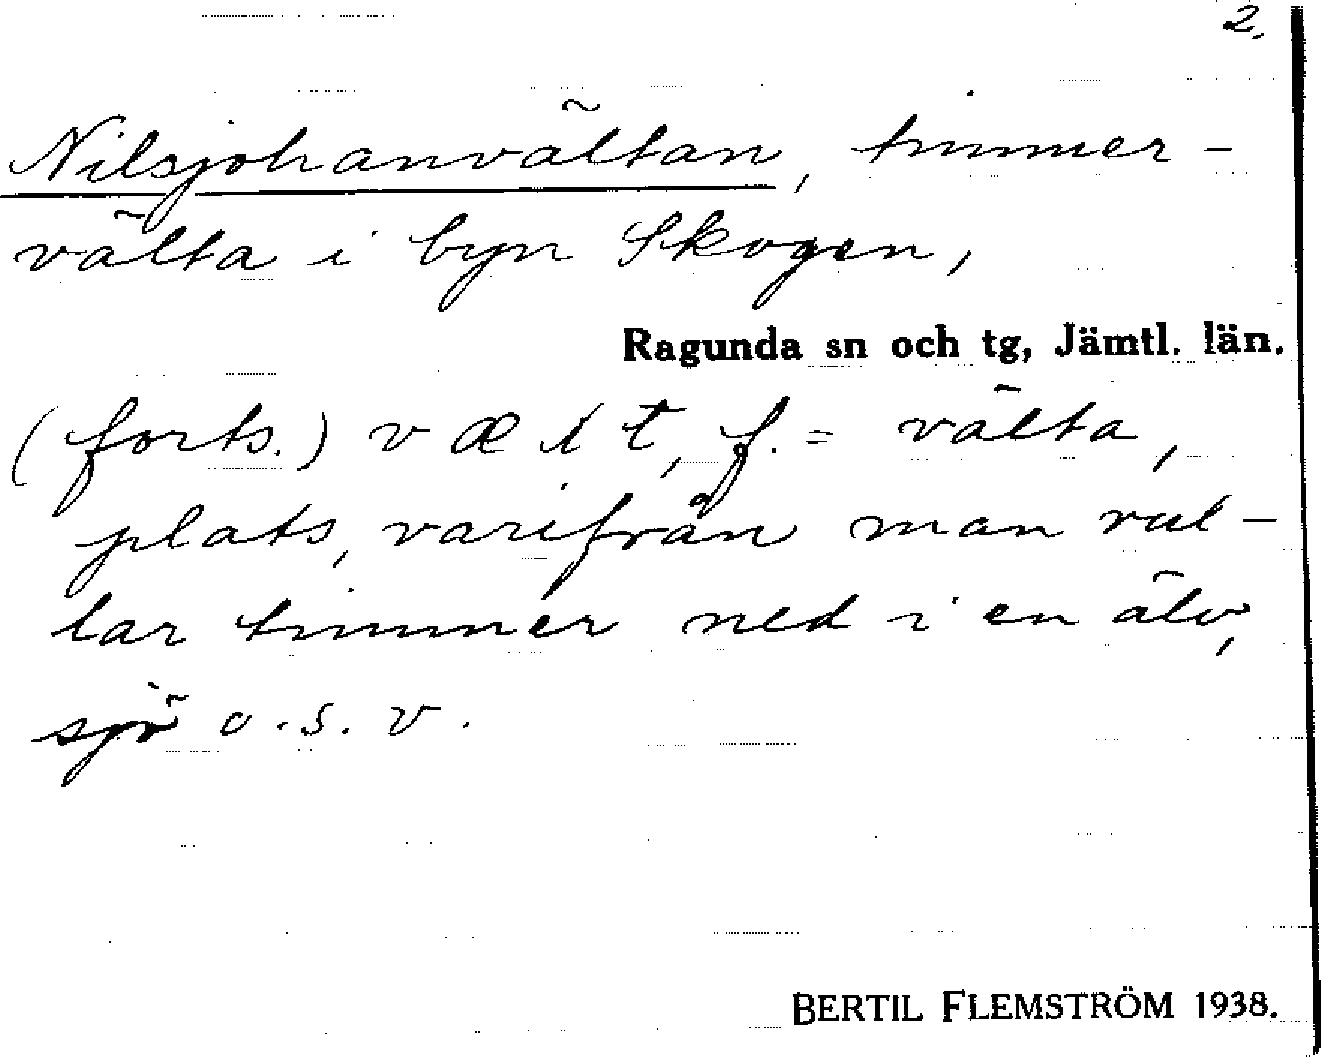 2.
Nilsjohanvältan, timmer-
välta i byn Skogen,
Ragunda sn och tg, Jämtl. län.
(forts.) væłt, f. = välta,
plats, varifrån man rul-
lar timmer ned i en älv,
sjö o.s.v.
BERTIL FLEMSTRÖM 1938.